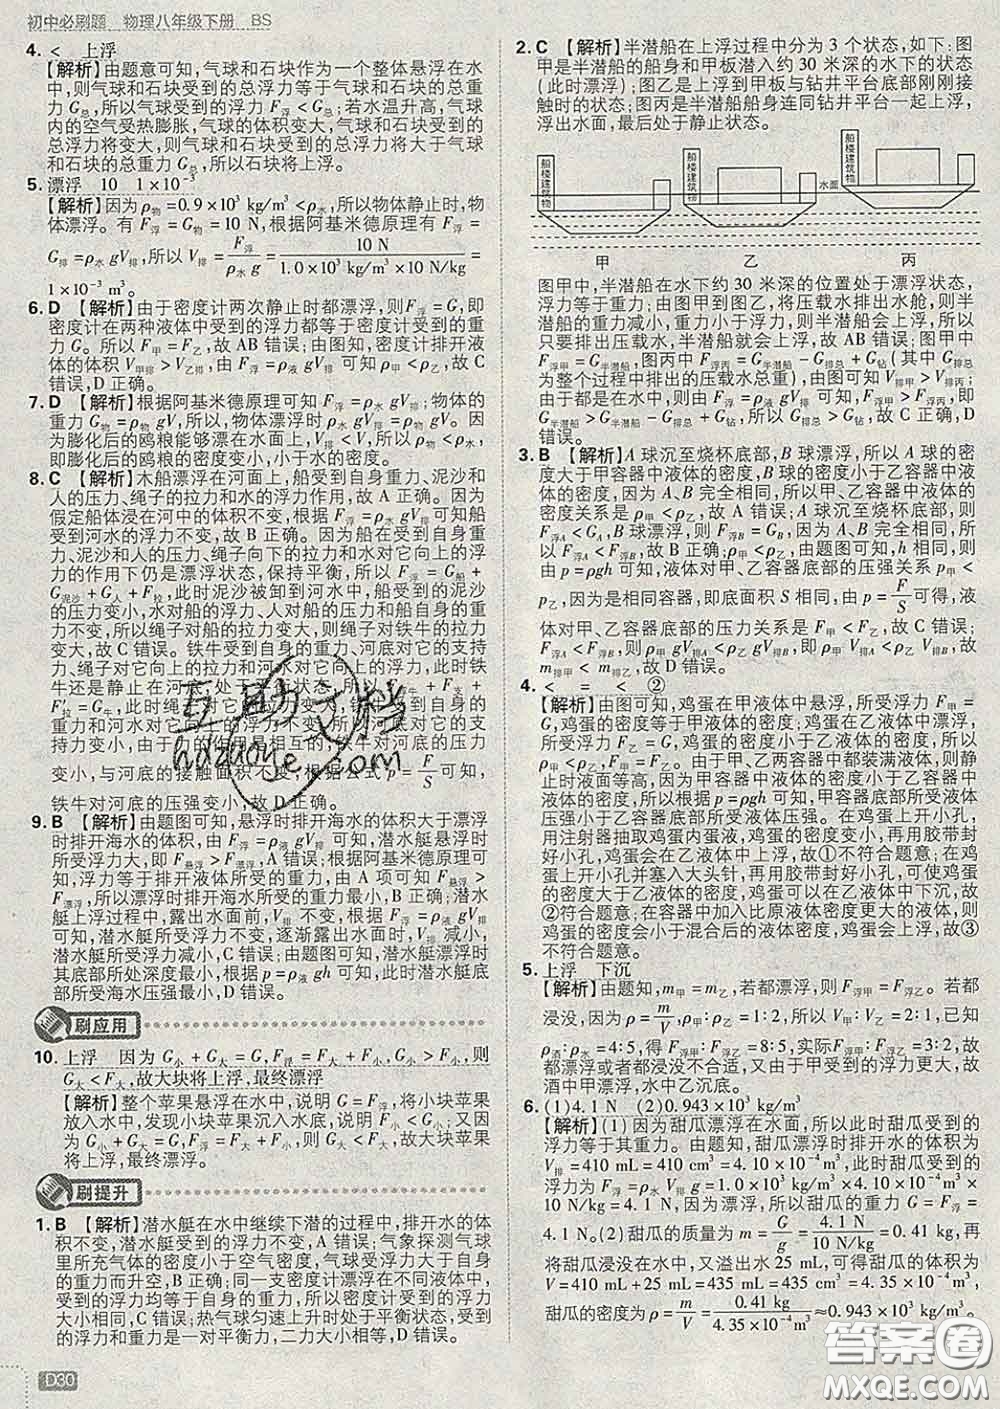 初中必刷题 物理八年级下册 BS
4. < 上浮
【解析】由题意可知,气球和石块作为一个整体悬浮在水
中,则气球和石块受到的总浮力等于气球和石块的总重
力G总,所以气球受到的浮力F浮<G总;若水温升高,气球
内的空气受热膨胀,气球的体积变大,气球和石块受到的
总浮力将变大,则气球和石块受到的总浮力将大于气球
和石块的总重力G总,所以石块将上浮。
5. 漂浮 10 1×10⁻³
【解析】因为ρ物=0.9×10³ kg/m³<ρ水,所以物体静止时,
物体漂浮。有F浮=G物=10 N,根据阿基米德原理有F浮=
G排=ρ水gV排,所以V排=F浮/ρ水g=10 N/(1.0×10³ kg/m³×10 N/kg)=
1×10⁻³ m³。
6. D 【解析】由于密度计两次静止时都漂浮,则F浮=G,即
密度计在两种液体中受到的浮力都等于密度计受到的重
力G。所以F甲=F乙,故AB错误;由图知,密度计排开液
体的体积V甲排>V乙排,由F浮=G排=ρ液gV排可知,故C
错误,D正确。
7. D 【解析】根据阿基米德原理可知F浮=ρ水gV排;物体的
重力G物=ρ物gV,所以,物体漂浮时ρ水gV排=ρ物gV。因
为膨化后的鸥粮能够漂在水面上,V排<V,所以ρ物<ρ水,
即膨化后的鸥粮的密度变小,小于水的密度。
8. C 【解析】木船漂浮在河面上,船受到自身重力、泥沙和
人的压力、绳子的拉力和水的浮力作用,故A正确。因为
假定船体浸在河中的体积不变,根据F浮=ρ水gV排可知船
受到河水的浮力不变,故B正确。因为船在受到自身重
力、泥沙和人的压力、绳子向下的拉力和水对它向上的浮
力的作用下仍是漂浮状态,保持平衡,所以F浮=G船+
G泥沙+G人+F拉,此时泥沙被卸到河水中,船受到的泥沙
的压力变小,水对船的浮力、人对船的压力和船自身的重
力不变,所以绳子对船的拉力变大,则绳子对铁牛的拉力变
大,故C错误。铁牛受到自身的重力、河水对它向下的压
力、绳子对它向上的拉力和河水对它向上的浮力,此时铁
牛还是静止在河底,处于平衡状态,所以F浮牛+F支+
F′拉=G牛,此时绳子
的重力和河水对它的浮力不变,所以河底对它的支
持力变小,由于力的作用是相互的,
变小,与河底的接触面积不变,根据公式p=F/S可知,
铁牛对河底的压强变小,故D正确。
9. B 【解析】由题图可知,悬浮时排开海水的体积大于漂浮
时排开海水的体积,由F浮=ρ液gV排可知,潜水艇悬浮时
所受浮力大,即F悬浮>F漂浮,A错误;根据阿基米德原理可
知,浮力等于排开液体所受的重力,由A项可知F悬浮>
F漂浮,所以漂浮时排开海水所受的重力最小,B正确;潜水
艇上浮过程中,露出水面前,V排不变,根据F浮=ρ液gV排
可知,潜水艇所受浮力不变,逐渐露出水面时,V排减小,
潜水艇所受浮力减小,C错误;由题图可知,潜水艇漂浮时
其底部所处深度最小,根据p=ρ液gh可知,此时潜水艇底
部所受海水压强最小,D错误。
刷应用
10. 上浮 因为G小+G大=G,F浮=F大+F小,G小>F小,则
G大<F大,故大块将上浮,最终漂浮
【解析】整个苹果悬浮在水中,说明G=F浮,将小块苹果
放入水中,发现小块苹果沉入水底,说明F小<G小;又
因为G小+G大=G,F浮=F大+F小,所以G大<F大,故大块苹果
将上浮,最终漂浮。
刷提升
1. B 【解析】潜水艇在水中继续下潜的过程中,排开水的体
积不变,潜水艇受到的浮力不变,A错误;气象探测气球
里所充气体的密度小于空气密度,气球受浮力大于自身
的重力而升空,B正确;同一支密度计漂浮在不同液体中,
受到的浮力均等于自身的重力,所以密度计所受浮力不
变,C错误;热气球匀速上升时处于平衡状态,所以自身
受到的浮力和重力是一对平衡力,二力大小相等,D错误。
D30
2. C 【解析】半潜船在上浮过程中分为3个状态,如下:图
甲是半潜船的船身和甲板潜入约30米深的水下的状态
(此时漂浮);图乙是上浮到甲板与钻井平台底部刚刚
接触时的状态;图丙是半潜船船身连同钻井平台一起上浮,
浮出水面,最后处于静止状态。
船楼建筑物 船楼建筑物 水面 船楼建筑物
甲 乙 丙
图甲中,半潜船在水下约30米深的位置处于漂浮状态,
浮力等于重力;由图甲到图乙,将压载水排出水舱,则半
潜船的重力减小,重力小于浮力,则半潜船会上浮,所以
只要排出压载水,半潜船就会上浮,故AB错误;图甲中
F浮甲=G半潜船,图丙中F浮丙=G半潜船-G排总+G钻(其中G排总
为整个过程中排出的压载水总重),因为V排甲>V排丙;
由于都是在水中,则由F浮=ρ液gV排可知,F浮甲>F浮丙,
即G半潜船>G半潜船-G排总+G钻,所以G排总>G钻,故C正确,D
错误。
3. B 【解析】A球沉至烧杯底部,B球漂浮,所以A球的密
度大于甲容器中液体的密度,B球的密度小于乙容器中液
体的密度,因为A、B完全相同,所以甲、乙容器中液体的
密度关系是ρ甲<ρ乙,故A错误;A球沉至烧杯底部,则
F浮A<GA,B球漂浮,则F浮B=GB,因为A、B完全相同,所
以F浮A<F浮B,故B正确;ρ甲<ρ乙,由题图可知,h相同,
则由p=ρgh可知,液体对甲、乙容器底部的压强关系p甲<
p乙,因为是相同容器,即底面积S相同,由p=F/S可得,液
体对甲、乙容器底部的压力关系是F甲<F乙,故C错误;
因为F浮A<F浮B,所以ρ甲gV排甲<ρ乙gV排乙,即m排甲<m排乙,故D错误。
4. < = < ②
【解析】由图可知,鸡蛋在甲液体中悬浮,所受浮力F甲=
G,鸡蛋的密度等于甲液体的密度。鸡蛋在乙液体中漂浮,
所受浮力F乙=G,鸡蛋的密度小于乙液体的密度。所以
F甲=F乙,ρ甲<ρ乙。由于甲、乙两容器中都装满液体,则
此时液面等高,因为甲容器中液体密度小于乙容器中
液体密度,根据p=ρgh可知,甲容器底部所受液体
压强小于乙容器底部所受液体压强。在鸡蛋上开小孔,
用注射器抽取鸡蛋内蛋液,鸡蛋的密度变小,再用胶带封
好小孔,鸡蛋会在乙液体中上浮,故①不符合题意;在鸡
蛋上开小孔并塞入大头针,再用胶带封好小孔,可使鸡蛋
的密度大于乙液体的密度,鸡蛋可以在乙液体中下沉,故
②符合题意;在容器中加入比原液体密度更大的液体,则
鸡蛋的密度会小于混合后的液体密度,鸡蛋会上浮,故③
不符合题意。
5. 上浮 下沉
【解析】由题知,m甲=m乙,若都漂浮,则F浮甲=F浮乙。若都
浸没,因为ρ=m/V,ρ甲:ρ乙=1:2,所以V甲:V乙=2:1,已知
ρ酒:ρ水=4:5,得F浮甲:F浮乙=8:5,实际F浮甲:F浮乙=3:2,故
不是都漂浮或者都浸没,而是甲受到的浮力更大,故
酒中甲漂浮,水中乙沉底。
6. (1)4.1 N (2)0.943×10³ kg/m³
【解析】(1)因为甜瓜漂浮在水面,所以此时甜瓜受到的
浮力等于其重力。由题知,甜瓜漂浮时排开水的体积
V排=410 mL=410 cm³=4.10×10⁻⁴ m³,此时甜瓜受到的
浮力F浮=ρ水gV排=1.0×10³ kg/m³×10 N/kg×4.10×
10⁻⁴ m³=4.1 N,所以甜瓜的重力G=F浮=
4.1 N。(2)甜瓜的质量为m=G/g=4.1 N/10 N/kg=0.41 kg,再
将甜瓜浸没在水中,又溢出水25 mL,可得甜瓜的体积为
V=410 mL+25 mL=435 mL=435 cm³=4.35×10⁻⁴ m³,
甜瓜的密度为ρ=m/V=0.41 kg/4.35×10⁻⁴ m³≈0.943×10³ kg/m³。
互助文档
hdzuoye.com
答案圈
MXQE.COM